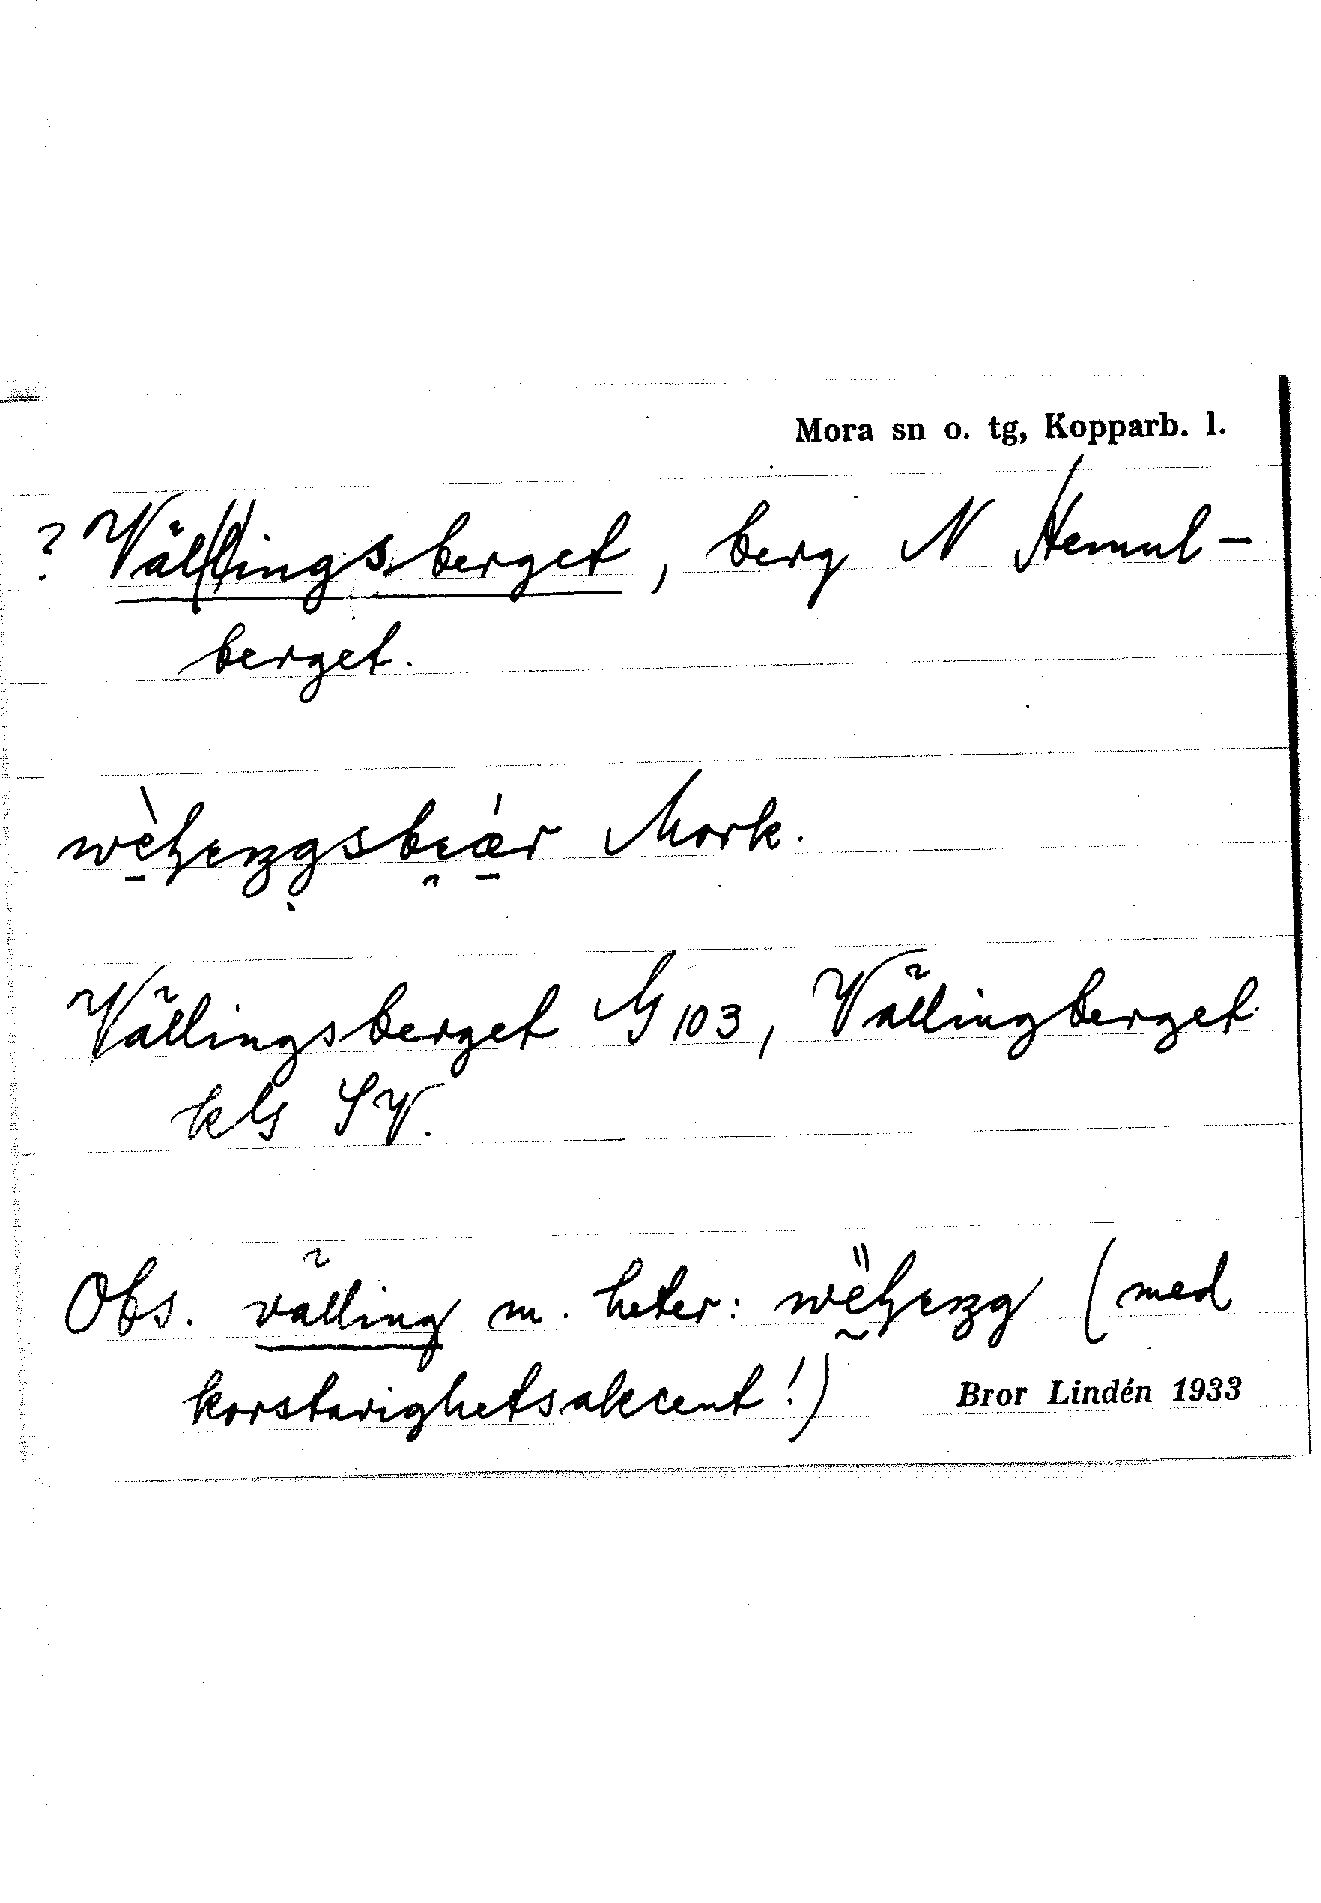 Mora sn o. tg, Kopparb. l.
? Vällingsberget, berg N Hemul-
berget.
Mork.
Vällingsberget G 103, Vällingberget
kls SV.
Obs. välling m. heter: (med
korstavighetsakcent!)
Bror Lindén 1933